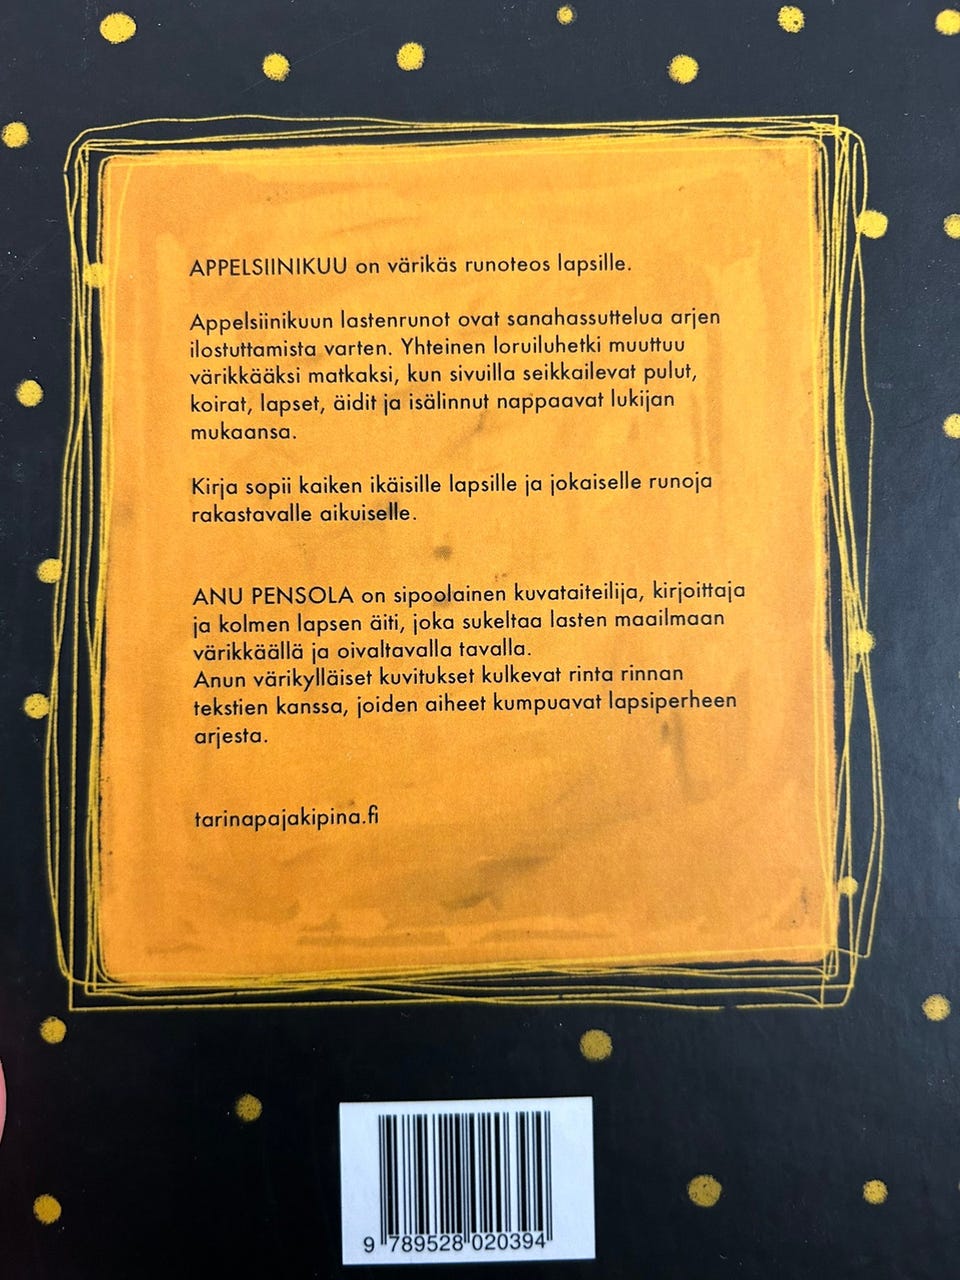 APPELSIINIKUU on värikäs runoteos lapsille.
Appelsiinikuun lastenrunot ovat sanahassuttelua arjen
ilostuttamista varten. Yhteinen loruiluhetki muuttuu
värikkääksi matkaksi, kun sivuilla seikkailevat pulut,
koirat, lapset, äidit ja isälinnut nappaavat lukijan
mukaansa.
Kirja sopii kaiken ikäisille lapsille ja jokaiselle runoja
rakastavalle aikuiselle.
ANU PENSOLA on sipoolainen kuvataiteilija, kirjoittaja
ja kolmen lapsen äiti, joka sukeltaa lasten maailmaan
värikkäällä ja oivaltavalla tavalla.
Anun värikylläiset kuvitukset kulkevat rinta rinnan
tekstien kanssa, joiden aiheet kumpuavat lapsiperheen
arjesta.
tarinapajakipina.fi
9 789528 020394